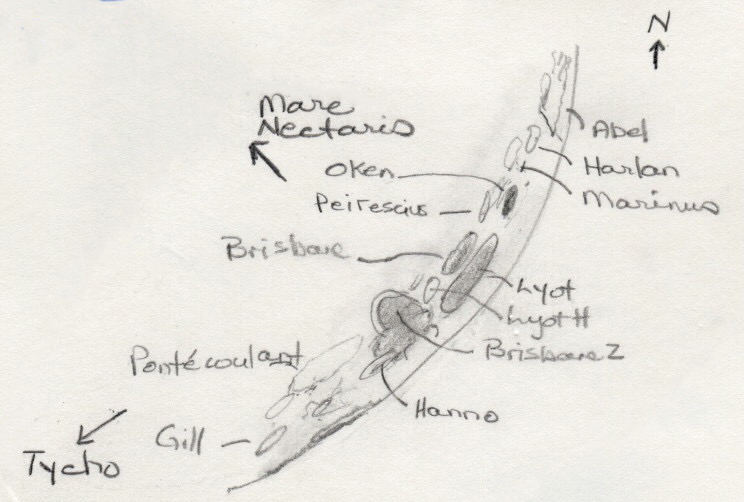 N
Mare
Nectaris
Abel
Harlan
Oken
Marinus
Peirescius
Brisbane
Lyot
Lyot H
Brisbane Z
Pontécoulant
Hanno
Gill
Tycho